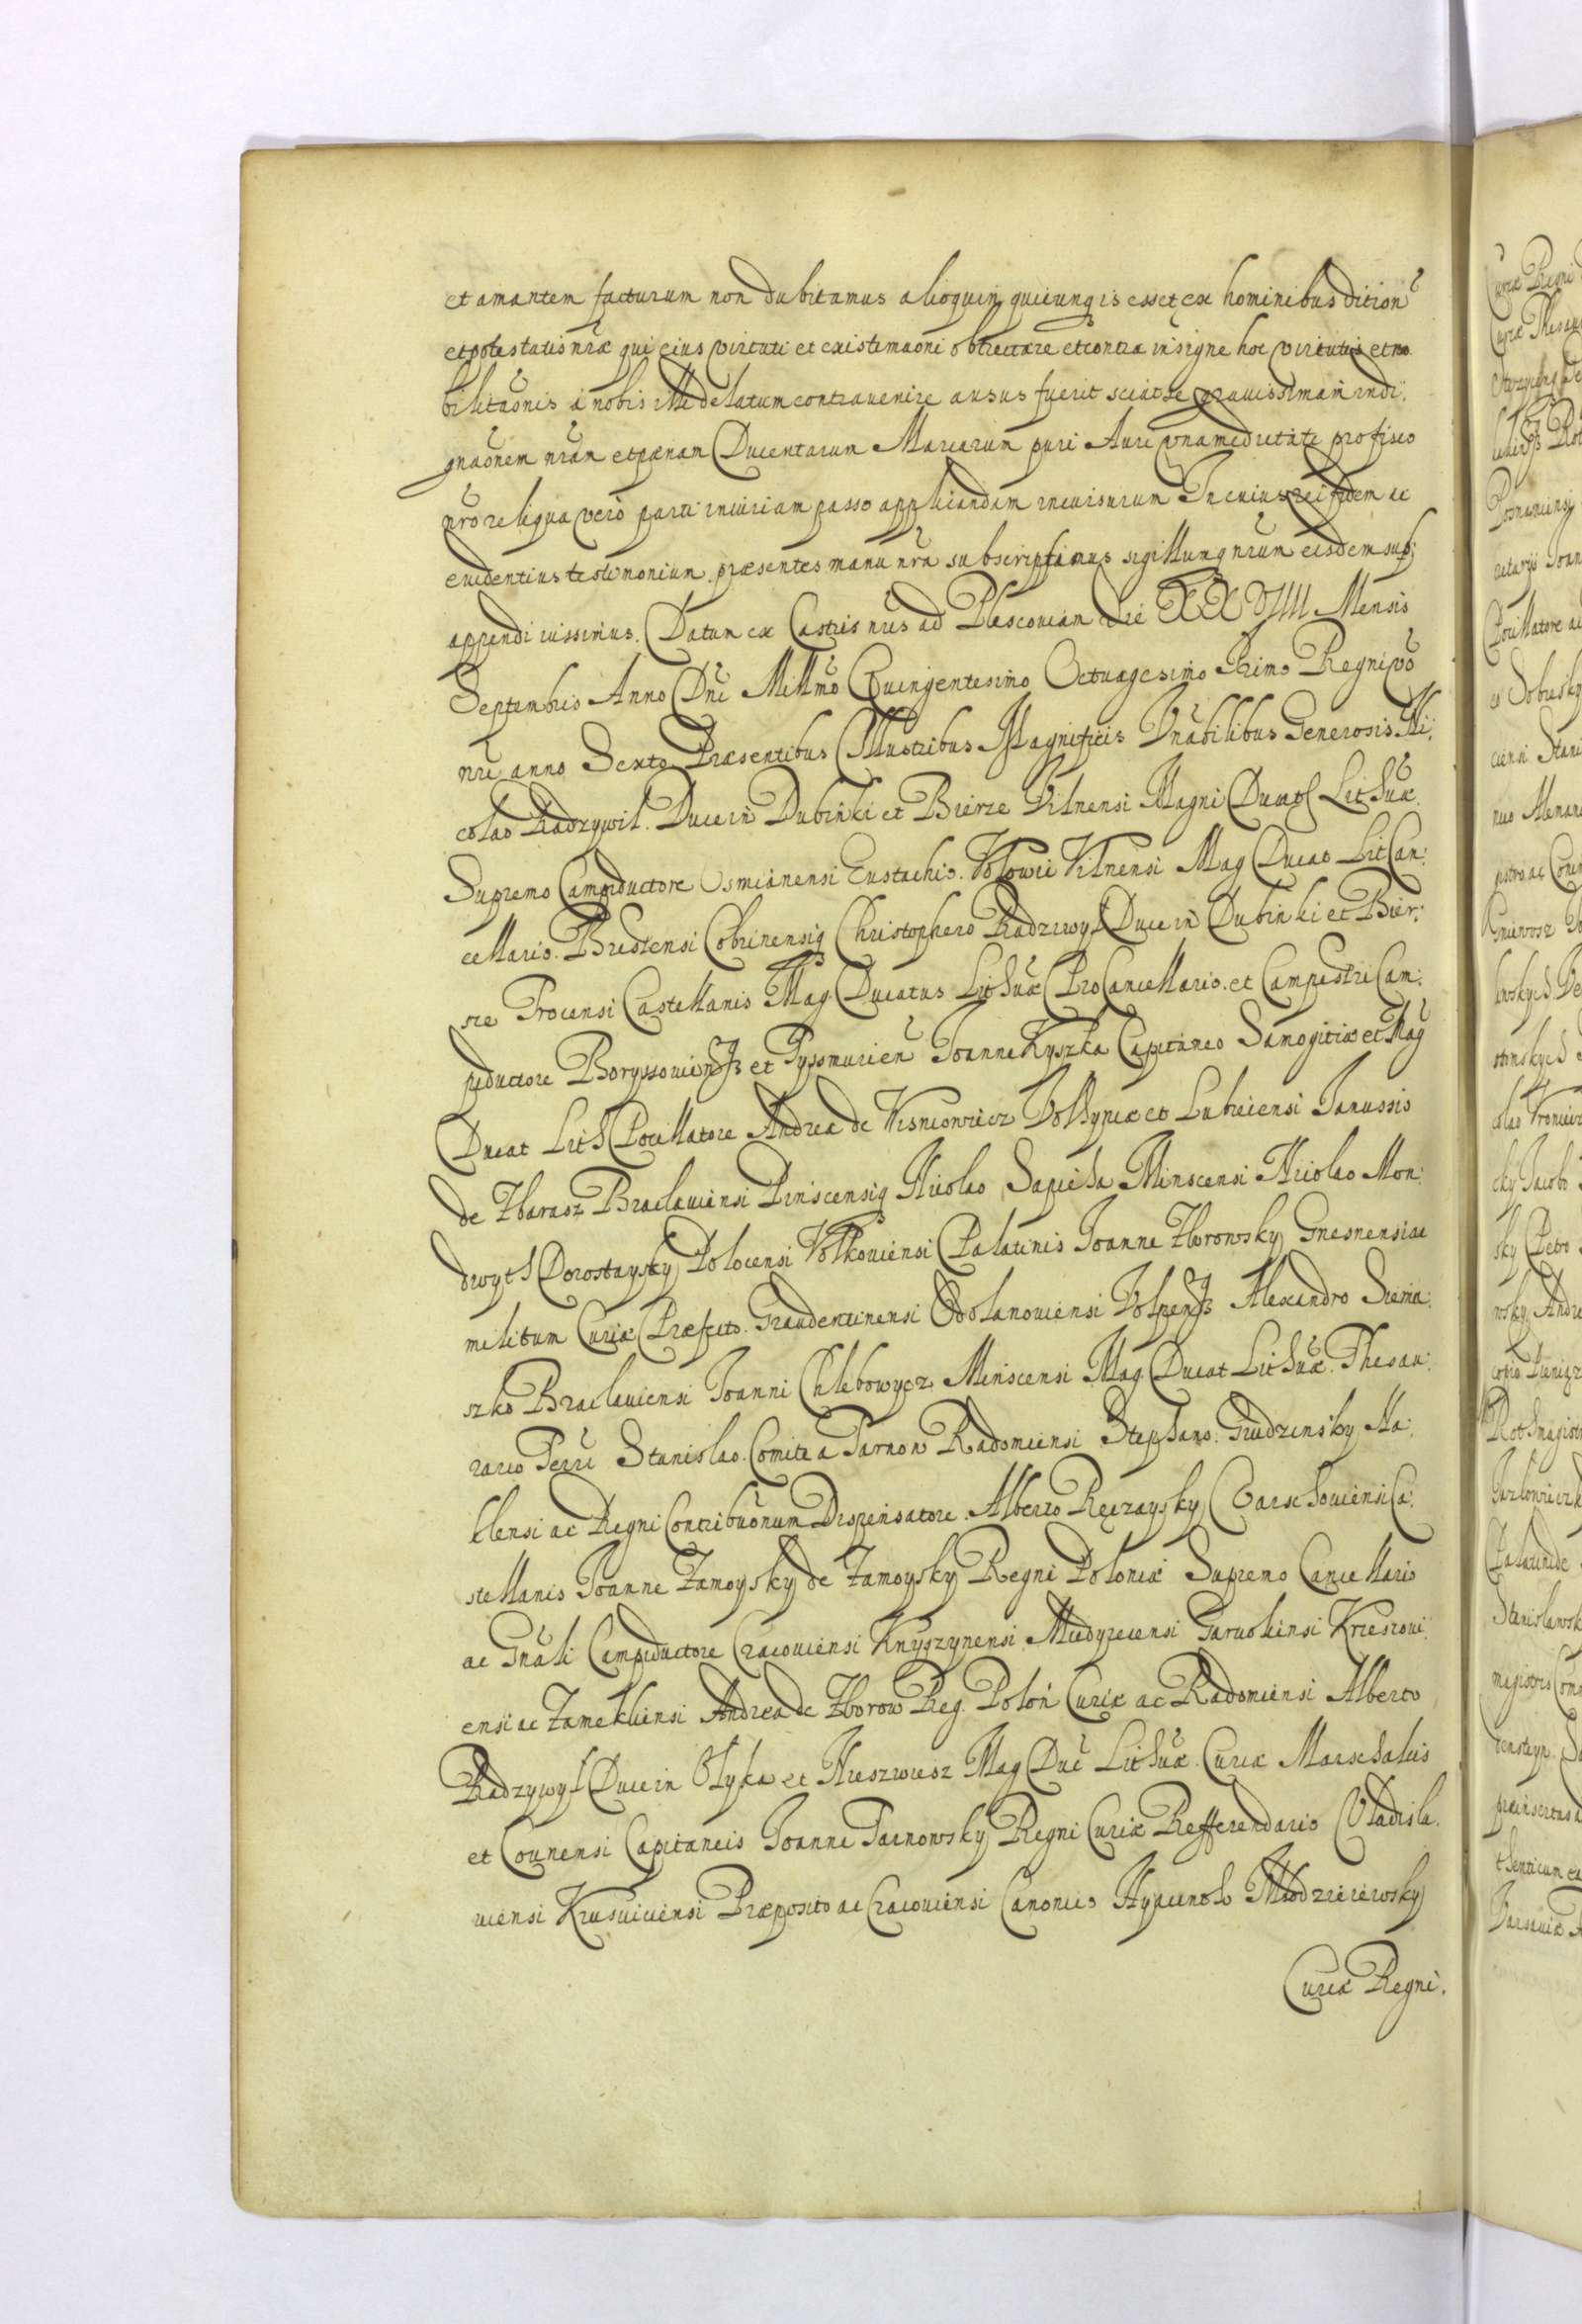 et amantem facturum non dubitamus alioquin quicunq is esset ex hominibus dition
et potestatis nrae qui eius virtuti et existimaoni obtrectare et contra insigne hoc virtutis et no
bilitaonis a nobis illi delatum contravenire ausus fuerit sciat se gravissimam indi:
gnaonem nram et paenam Ducentarum Marcarum puri Auri una medietate pro fisco
nro reliqua vero parti iniuriam passo applicandam incursurum In cuius rei fidem ac
evidentius testimonium praesentes manu nra subscripsimus sigillumq nrum eisdem sub:
appendi iussimus. Datum ex Castris nris ad Plescoviam die XXVIIII Mensis
Septembris Anno Dni Millmo Quingentesimo Octuagesimo Primo Regni vo
nri anno Sexto Praesentibus Illustribus Magnificis Vnabilibus Generosis Ni:
colao Radzywil. Duce in Dubinki et Bierze Vilnensi Magni Ducat Lithuae
Supremo Campiductore Osmianensi Eustachio. Wolowic Vilnensi Mag Ducat Lit Can:
cellario. Brestensi Cobrinensiq Christophero Radziwyl Duce in Dubinki et Bier:
rze Trocensi Castellanis Mag Ducatus Lithuae Pro Cancellario. et Campestri Cam:
piductore Boryssoviens et Pyssmurien Joanne Kyszka Capitaneo Samogitiae et Mag
Ducat Lith Pocillatore Andrea de Wisniowiecz Volhyniae et Lubeiensi Janussio
de Zbarasz Braclaviensi Pinscensiq Nicolao Sapieha Minscensi Nicolao Mon:
dwyth Dorostaysky Polocensi Wolkoviensi Palatinis Joanne Zborowsky Gnesnensi ac
militum Curiae Praefecto. Graudentinensi Odolanoviensi Volpens Alexandro Siema:
szko Braclaviensi Joanni Chlebowycz Minscensi Mag Ducat Lithuae. Thesau:
rario Terri Stanislao. Comite a Tarnow Radomiensi Stephano. Grudzinsky Na:
klensi ac Regni Contribuonum Dispensatore. Alberto Ręczaysky Varschoviensi Ca:
stellanis Joanne Zamoysky de Zamoysky Regni Poloniae Supremo Cancellario
ac Gnali Campiductore Cracoviensi Knyszynensi Miedyrecensi Garvolinsi Krzeszovi:
ensi ac Zamekhensi Andrea de Zborow Reg. Polon Curiae ac Radomiensi Alberto
Radzywyl Duce in Olyka et Nieszwiesz Mag Duc Lithuae. Curiae Marschalcis
et Counensi Capitaneis Joanne Tarnowsky Regni Curiae Refferendario Vladisla.
viensi Krusviciensi Praeposito ac Cracoviensi Canonico Hyacintho Mlodzieiewsky
Curiae Regni.